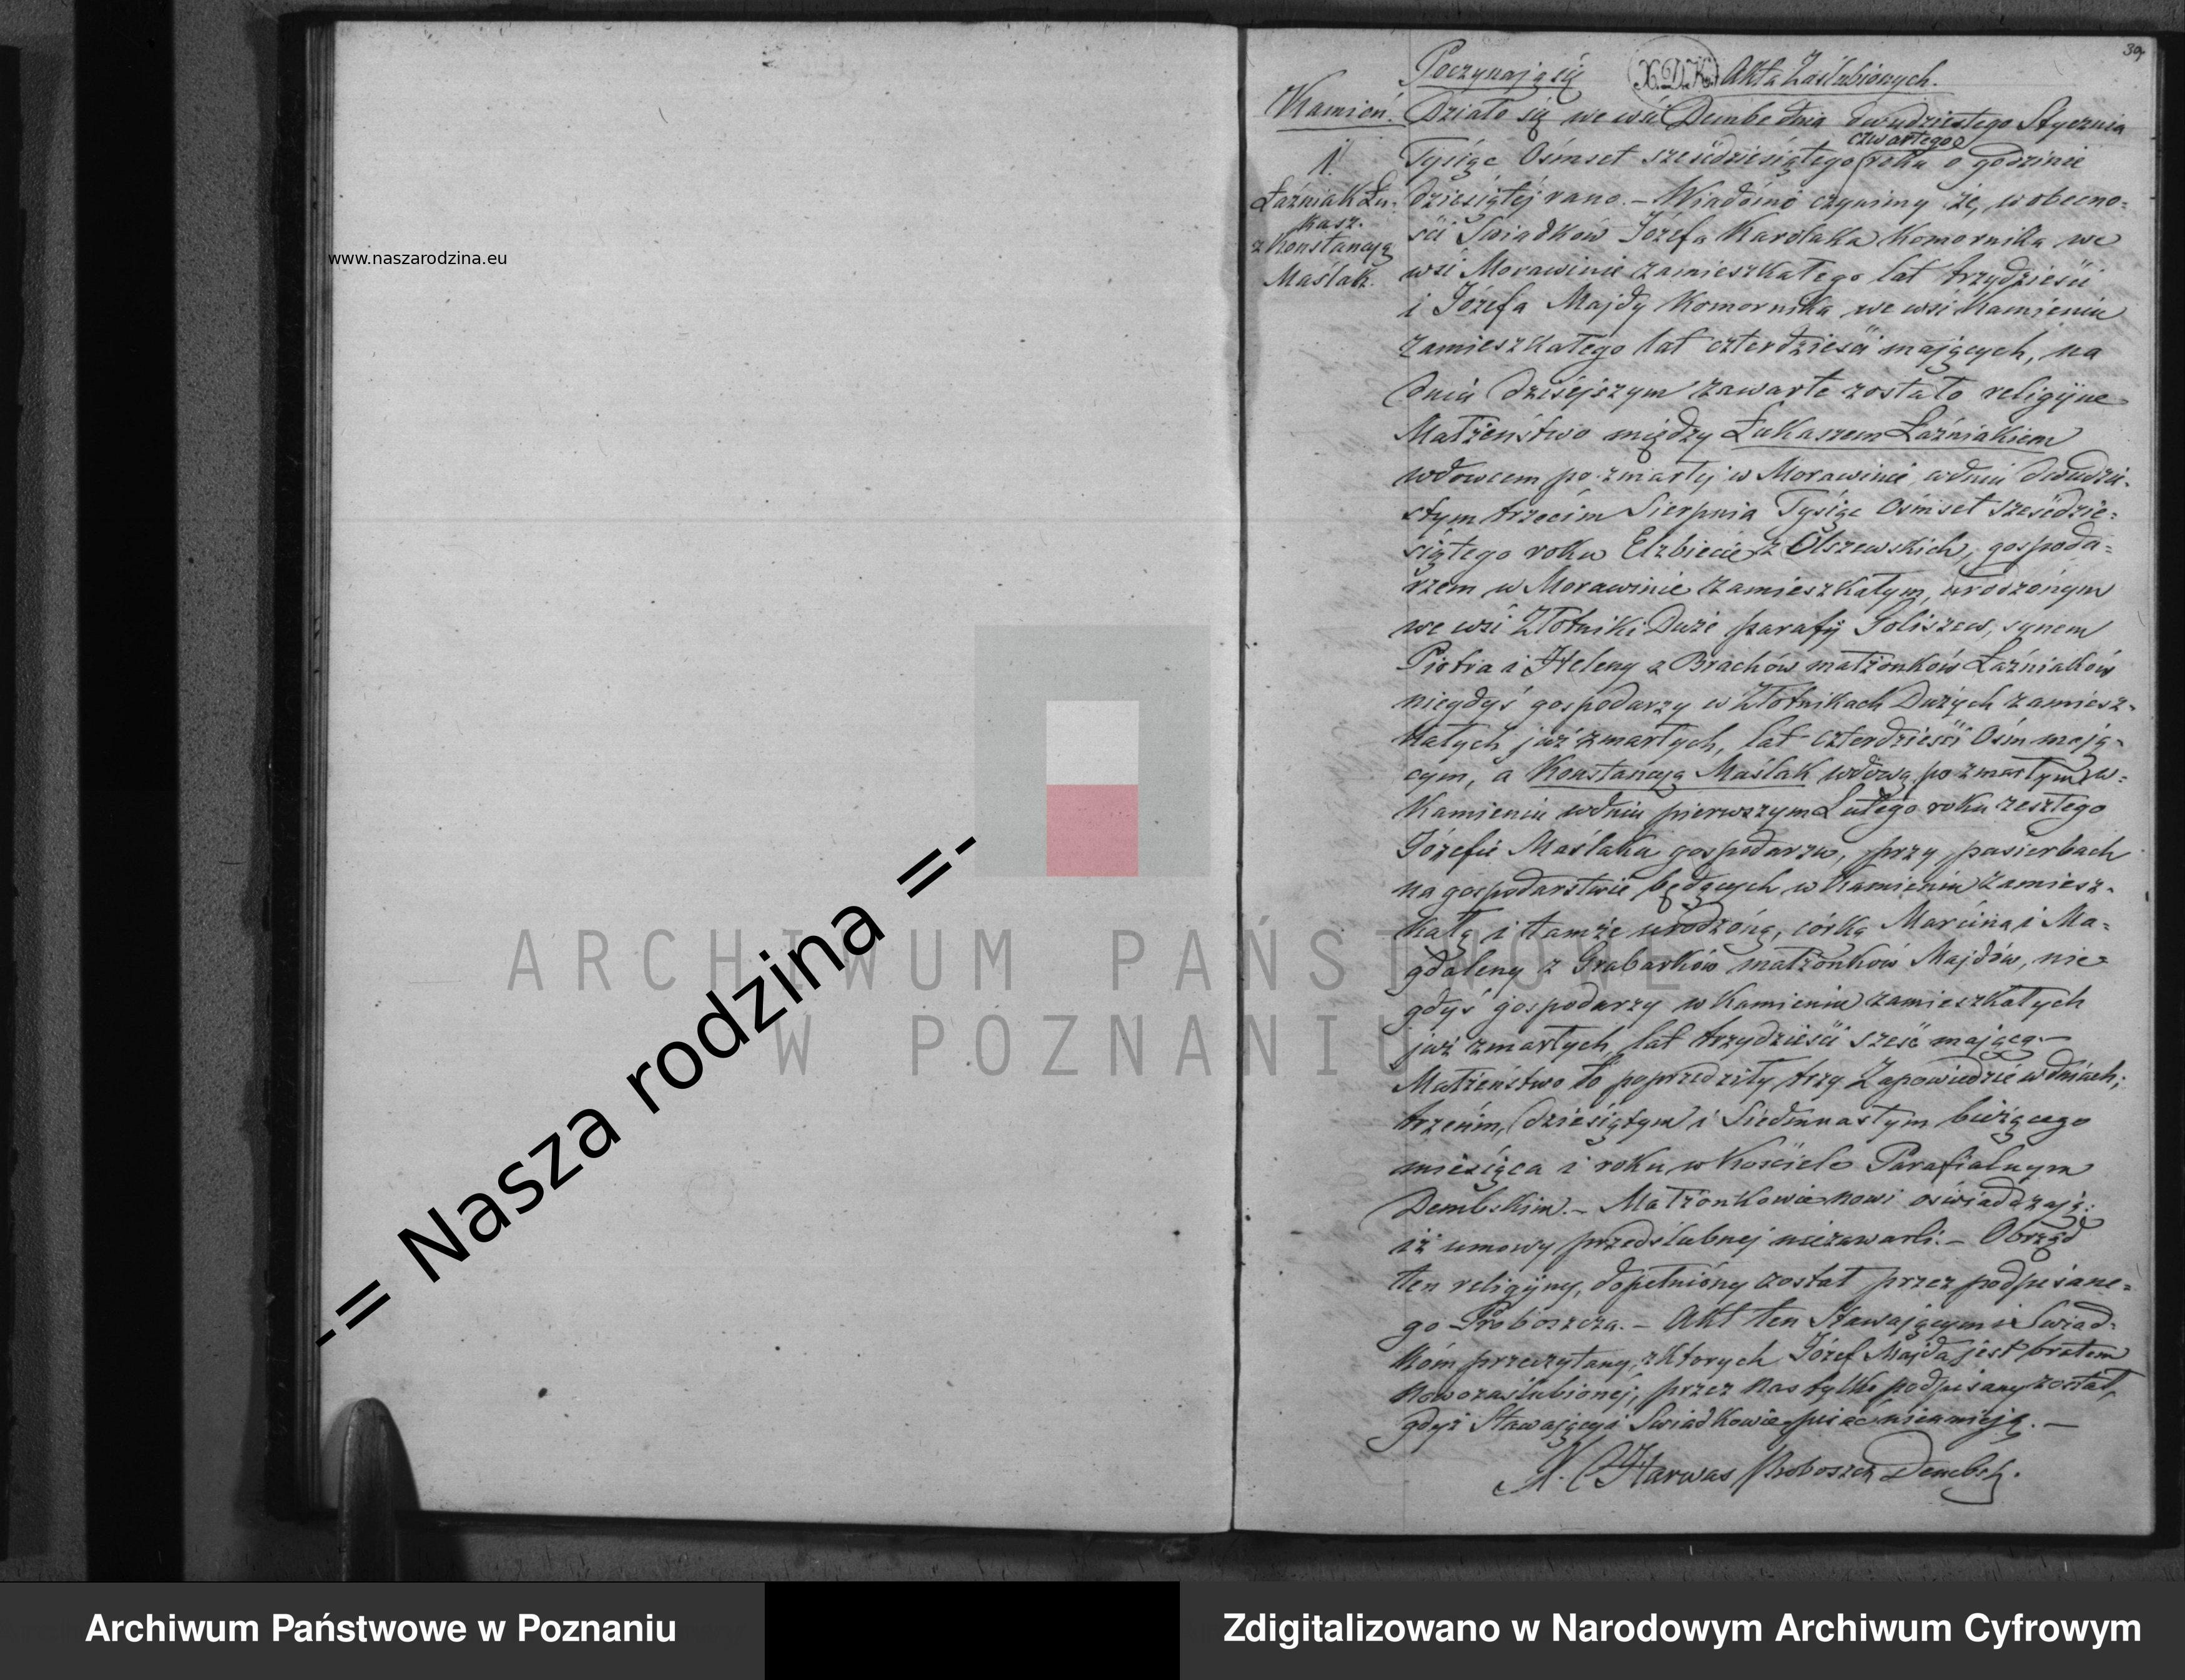 39
Poczynają się X.D.K. Akta Zaślubionych.
Kamień.
1.
Łaźniak Łu-
kasz.
z Konstancyą
Maślak.
Działo się we wsi Dembe dnia dwudziestego Stycznia
czwartego
Tysiąc Ośmset sześćdziesiątego roku o godzinie
dziesiątej rano. – Wiadomo czynimy że, w obecno-
ści Świadków Józefa Karolaka Komornika we
wsi Morawinie zamieszkałego lat trzydzieści
i Józefa Majdy Komornika we wsi Kamieniu
zamieszkałego lat czterdzieści mających, na
dniu dzisiejszym zawarte zostało religijne
Małżeństwo między Łukaszem Łaźniakiem
wdowcem po zmarłej w Morawinie, w dniu dwudzie-
stym trzecim Sierpnia Tysiąc Ośmset sześćdzie-
siątego roku Elżbiecie z Olszewskich, gospoda-
rzem w Morawinie zamieszkałym, urodzonym
we wsi Złotniki Duże parafij Goliszew, synem
Piotra i Heleny z Brachów małżonków Łaźniaków
niegdyś gospodarzy w Złotnikach Dużych zamiesz-
kałych już zmarłych, lat czterdzieści Ośm mają-
cym, a Konstancyą Maślak wdową po zmarłym w
Kamieniu w dniu pierwszym Lutego roku zeszłego
Józefie Maślaku gospodarzu, przy pasierbach
na gospodarstwie będących w Kamieniu zamiesz-
kałą i tamże urodzoną, córką Marcina i Ma-
gdaleny z Grabarków małżonków Majdów, nie-
gdyś gospodarzy w Kamieniu zamieszkałych
już zmarłych, lat trzydzieści sześć mającą. –
Małżeństwo to poprzedziły trzy Zapowiedzie w dniach;
trzecim, dziesiątym i Siedmnastym bieżącego
miesiąca i roku w Kościele Parafialnym
Dembskim. – Małżonkowie nowi oświadczają:
iż umowy przedślubnej niezawarli. – Obrząd
ten religijny, dopełniony został przez podpisane-
go Proboszcza. – Akt ten Stawającym i Świad-
kom przeczytany, z których Józef Majda jest bratem
nowozaślubionej, przez nas tylko podpisany został,
gdyż Stawający i Świadkowie pisać nieumieją. –
X. Harwas Proboszcz Dembsk.
www.naszarodzina.eu
-= Nasza rodzina =-
ARCHIWUM PAŃSTWOWE
W POZNANIU
Archiwum Państwowe w Poznaniu
Zdigitalizowano w Narodowym Archiwum Cyfrowym